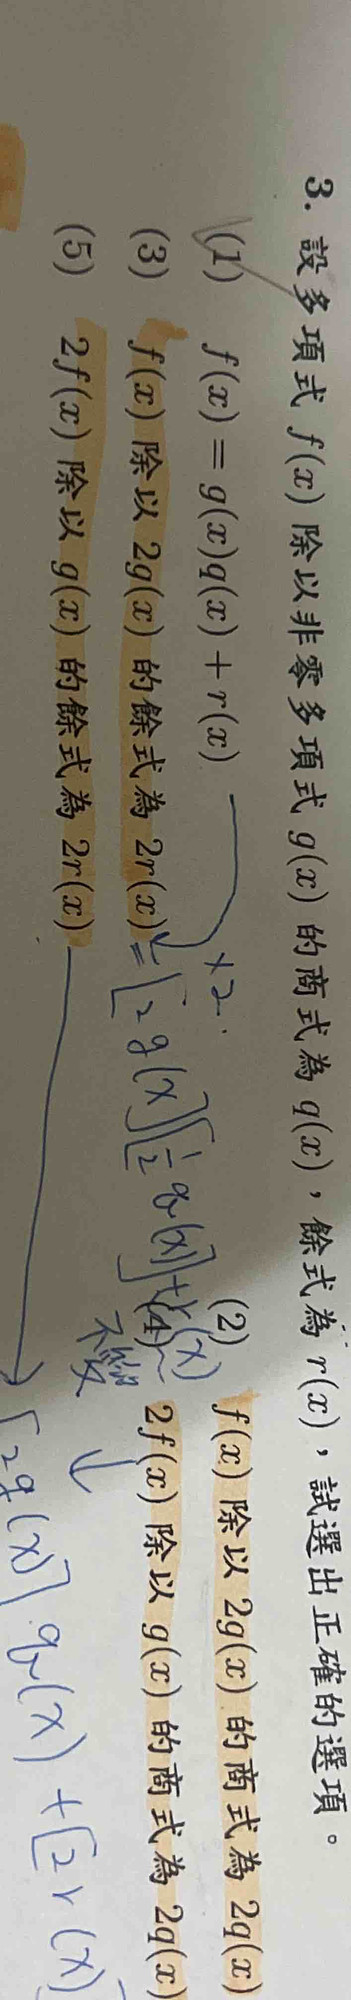 3. 設多項式 f(x) 除以非零多項式 g(x) 的商式為 q(x)，餘式為 r(x)，試選出正確的選項。
(1) f(x) = g(x)q(x) + r(x)
(2) f(x) 除以 2g(x) 的商式為 2q(x)
×2
(3) f(x) 除以 2g(x) 的餘式為 2r(x)
= [2g(x)][½q(x)] + r(x)
不變
(4) 2f(x) 除以 g(x) 的商式為 2q(x)
(5) 2f(x) 除以 g(x) 的餘式為 2r(x)
[2g(x)] q(x) + [2r(x)]